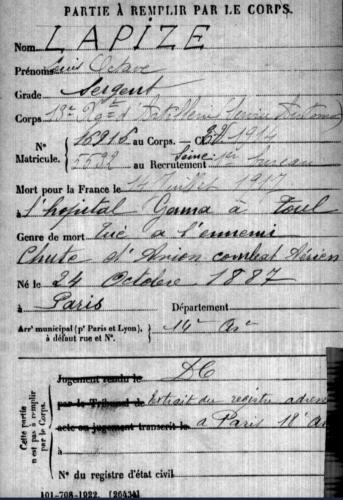 PARTIE À REMPLIR PAR LE CORPS.
Nom LAPIZE
Prénoms Louis Octave
Grade Sergent
Corps 18e Rgt d'Artillerie (Service Automo)
N° 16918 au Corps. — Cl 1914
Matricule. 5592 au Recrutement Seine 1er bureau
Mort pour la France le 14 Juillet 1917
à l'hopital Gama à Toul
Genre de mort Tué a l'ennemi
Chute d'Avion combat Aérien
Né le 24 Octobre 1887
à Paris Département
Arrt municipal (pr Paris et Lyon), à défaut rue et N°. 14e Arr
Cette partie n'est pas à remplir par le Corps.
Jugement rendu le DC
par le Tribunal de Extrait du registre adressé
acte ou jugement transcrit le a Paris 18e Arr
N° du registre d'état civil
101-708-1922. [26434]